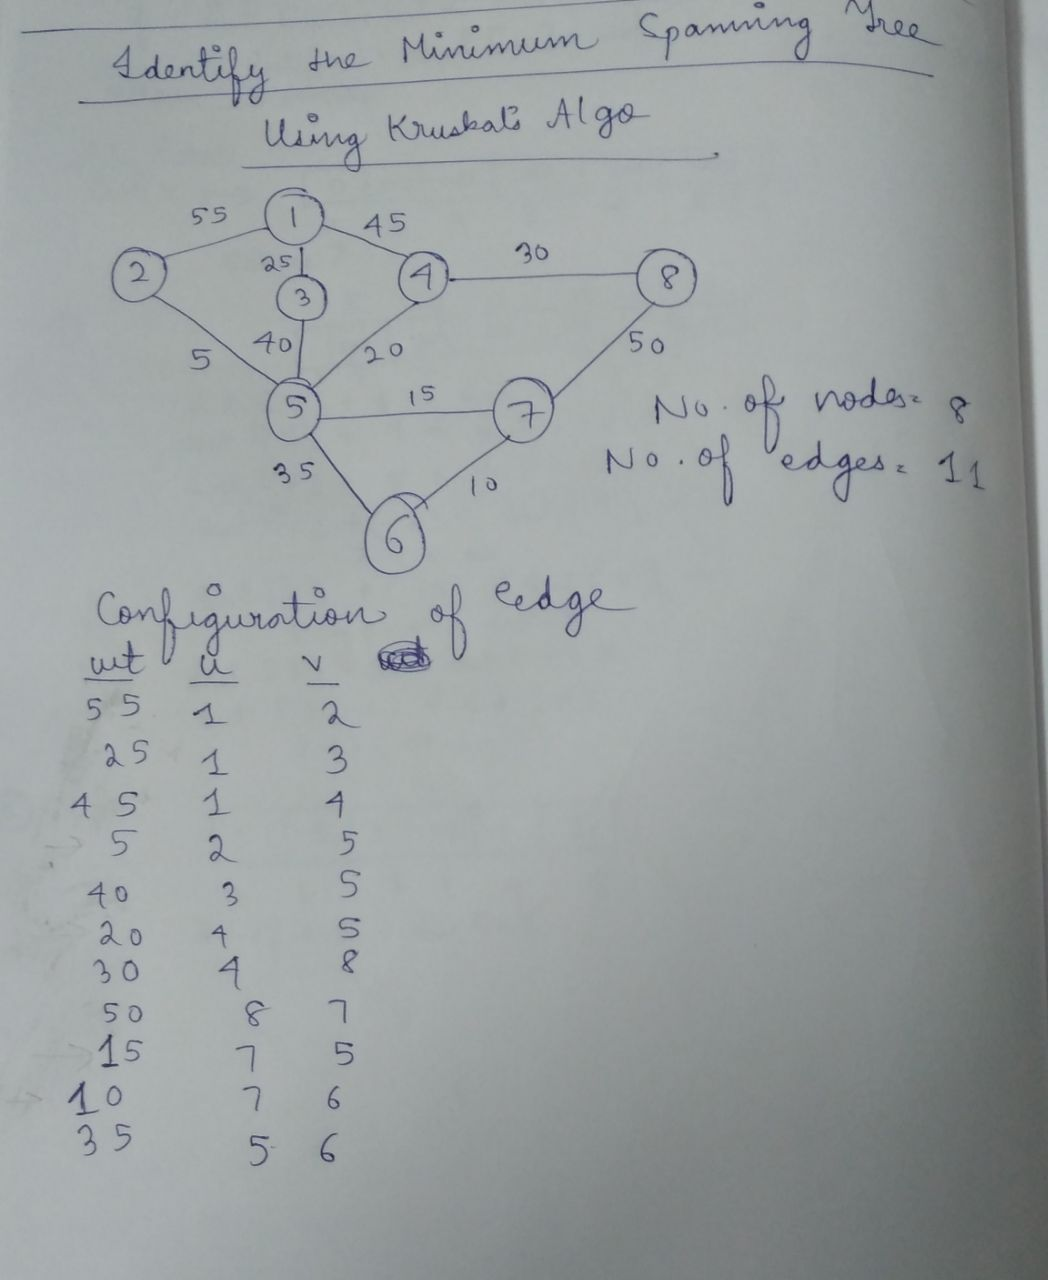 Identify the Minimum Spanning Tree
Using Kruskal's Algo
55 1 45
2 25 4 30 8
3
5 40 20 50
5 15 7
35 10
6
No. of nodes = 8
No. of edges = 11
Configuration of edge
wt u v
55 1 2
25 1 3
45 1 4
5 2 5
40 3 5
20 4 5
30 4 8
50 8 7
15 7 5
10 7 6
35 5 6